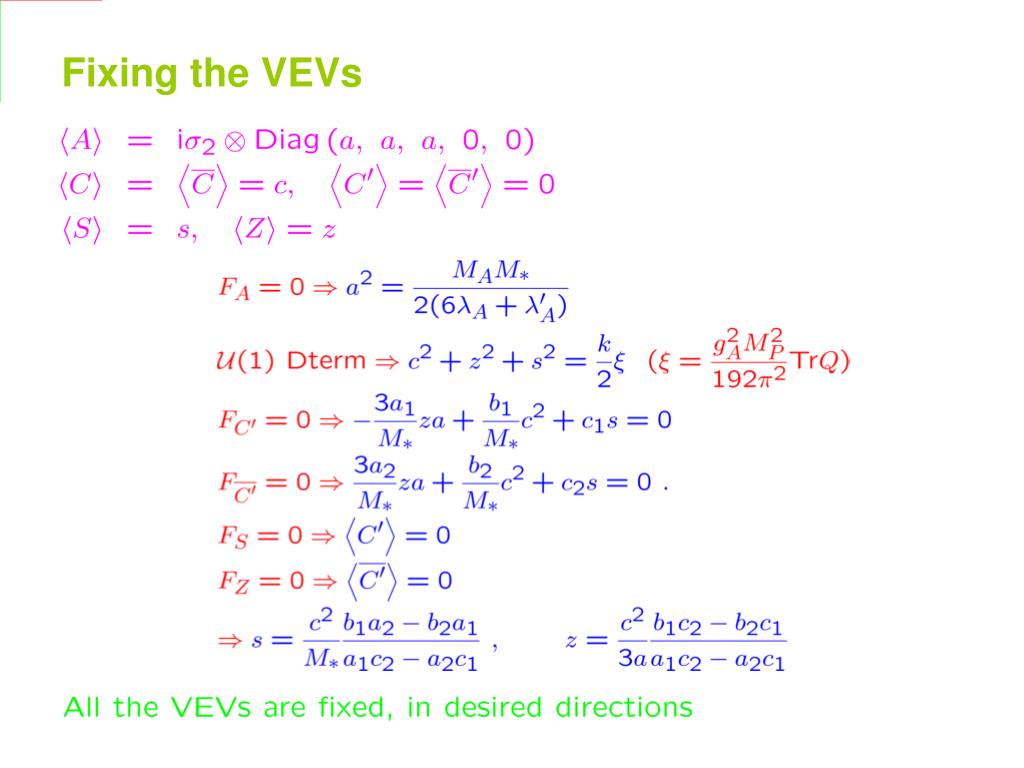 Fixing the VEVs
⟨A⟩ = iσ₂ ⊗ Diag (a, a, a, 0, 0)
⟨C⟩ = ⟨C̅⟩ = c, ⟨C′⟩ = ⟨C̅′⟩ = 0
⟨S⟩ = s, ⟨Z⟩ = z
F_A = 0 ⇒ a² = \frac{M_A M_*}{2(6λ_A + λ′_A)}
𝒰(1) Dterm ⇒ c² + z² + s² = \frac{k}{2}ξ (ξ = \frac{g_A² M_P²}{192π²}TrQ)
F_{C′} = 0 ⇒ −\frac{3a₁}{M_*}za + \frac{b₁}{M_*}c² + c₁s = 0
F_{\overline{C′}} = 0 ⇒ \frac{3a₂}{M_*}za + \frac{b₂}{M_*}c² + c₂s = 0 .
F_S = 0 ⇒ ⟨C′⟩ = 0
F_Z = 0 ⇒ ⟨\overline{C′}⟩ = 0
⇒ s = \frac{c²}{M_*}\frac{b₁a₂ − b₂a₁}{a₁c₂ − a₂c₁} , z = \frac{c²}{3a}\frac{b₁c₂ − b₂c₁}{a₁c₂ − a₂c₁}
All the VEVs are fixed, in desired directions